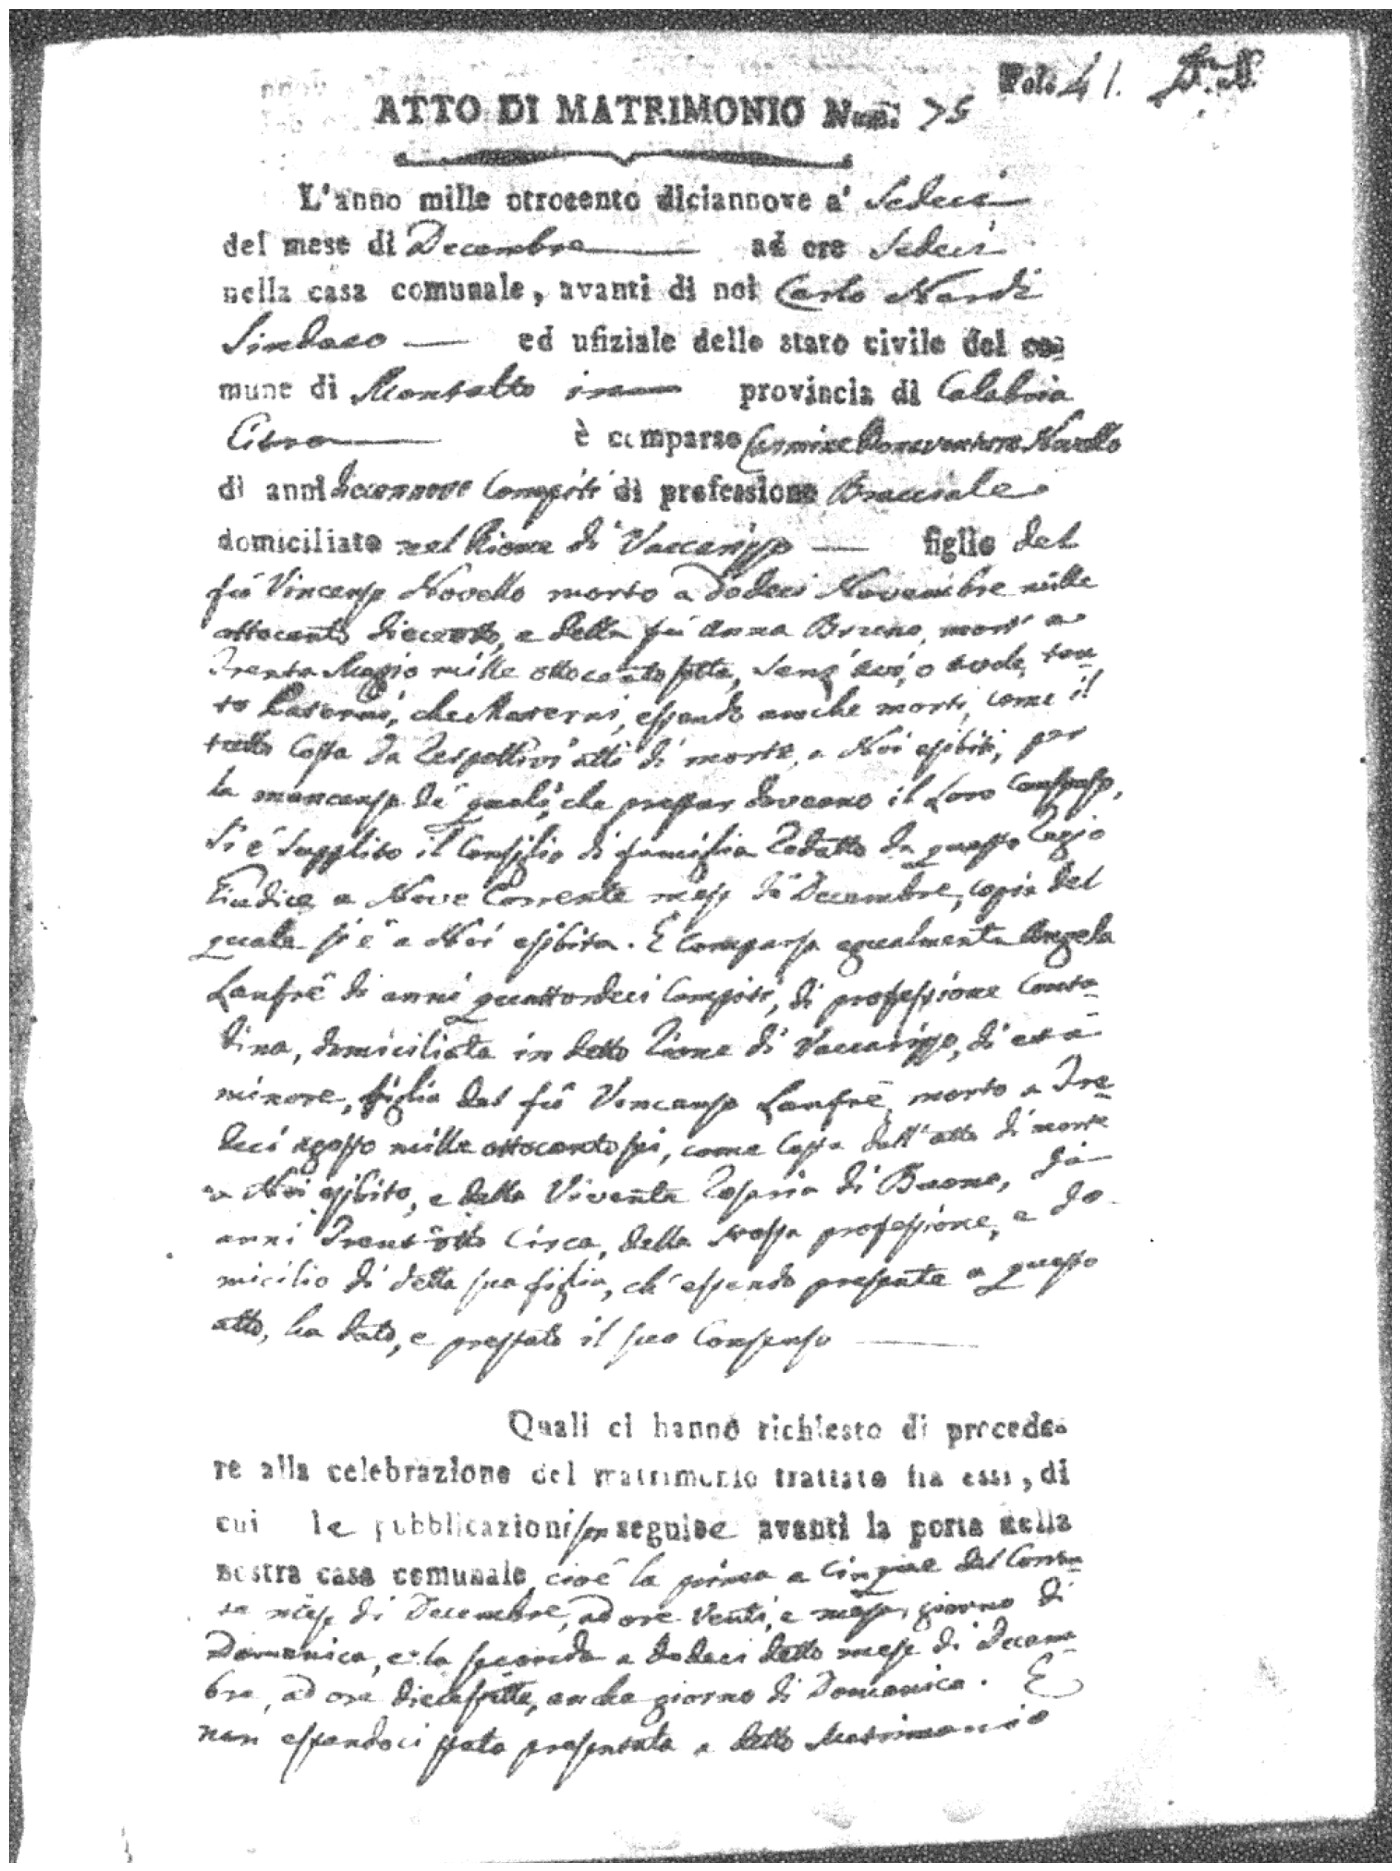 Folo 41.
ATTO DI MATRIMONIO Num. 75
L'anno mille ottocento diciannove a' Sedeci
del mese di Decembre ad ore Sedeci
nella casa comunale, avanti di noi Carlo Nardi
Sindaco ed ufiziale dello stato civile del co=
mune di Montalto in provincia di Calabria
Citra è comparso Carmine Bonaventura Novello
di anni diciannove Compiti di professione Bracciale
domiciliato nel Rione di Vaccarizzo figlio del
fù Vincenzo Novello morto a Dodeci Novembre mille
ottocento dieciotto, e della fù Anna Bruno, mort' a
Trenta Magio mille ottocento sette, senz' avi, o avole, tan=
to Paterni, che Materni, essendo anche morti, come il
tutto Costa da Respettivi atti di morte, a Noi esibiti, per
la mancanza de' quali, che prestar doveano il Loro Consenso,
si è supplito il Consiglio di famiglia Redatto da questo Regio
Giudice a Nove Corrente mese di Decembre, copia del
quale si è a Noi esibita. E Comparsa egualmente Angela
Lanfrè di anni quattordeci Compiti, di professione Conta=
dina, domiciliata in detto Rione di Vaccarizzo, di età
minore, figlia del fù Vincenzo Lanfrè, morto a Tre=
deci agosto mille ottocento sei, come Costa dall'atto di morte
a Noi esibito, e della Vivente Rosaria di Buono, di
anni Trent'otto Circa, della stessa professione, e do=
micilio di detta sua figlia, ch'essendo presente a questo
atto, ha dato, e prestato il suo Consenso
Quali ci hanno richiesto di procede=
re alla celebrazione del matrimonio trattato fra essi, di
cui le pubblicazioni son seguite avanti la porta della
nostra casa comunale, cioè la prima a Cinque del Corren=
te mese di Decembre, ad ore Venti, e mezza, giorno di
Domenica, e la seconda a dodeci detto mese di Decem=
bre, ad ore diecesette, anche giorno di Domenica. E
non essendoci stata presentata a detto Matrimonio